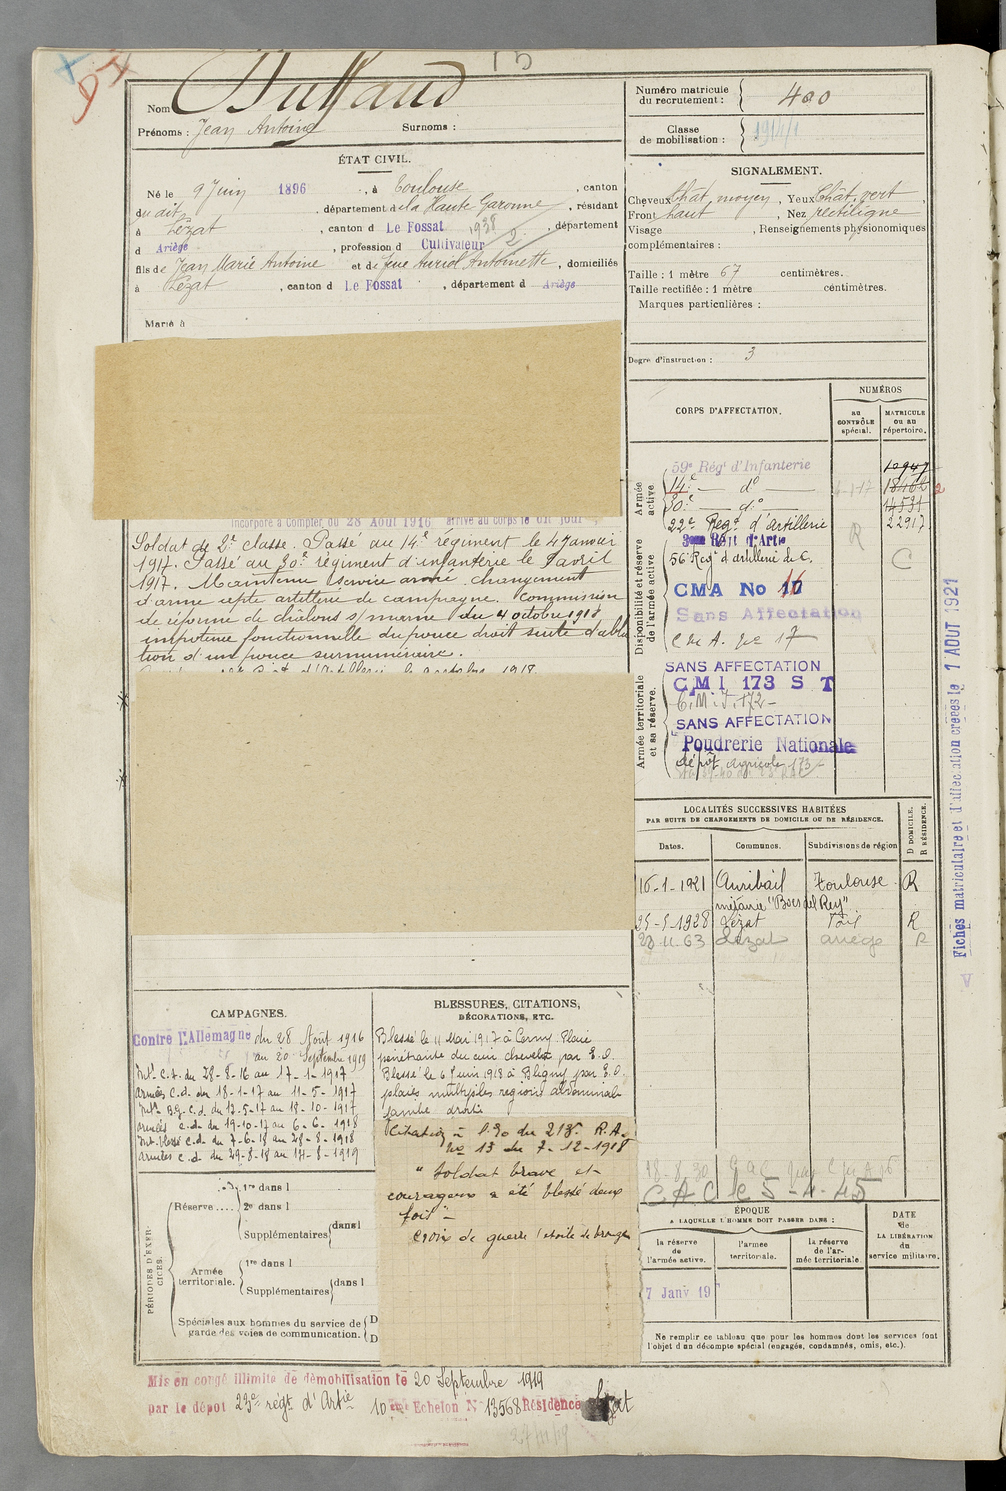 15
Nom Duffaud
Prénoms : Jean Antoine Surnoms :
Numéro matricule du recrutement : 400
Classe de mobilisation :
ÉTAT CIVIL.
Né le 9 Juin 1896, à Toulouse, canton
du dit, département de la Haute Garonne, résidant
à Lézat, canton d Le Fossat 1938, département
d Ariège, profession d Cultivateur 2
fils de Jean Marie Antoine et de feue Auriol Antoinette, domiciliés
à Lézat, canton d Le Fossat, département d Ariège
Marié à
SIGNALEMENT.
Cheveux Chât. moyen, Yeux Chât. vert,
Front haut, Nez rectiligne
Visage , Renseignements physionomiques
complémentaires :
Taille : 1 mètre 67 centimètres.
Taille rectifiée : 1 mètre centimètres.
Marques particulières :
Degré d'instruction : 3
Incorporé à compter du 28 Août 1916 arrivé au corps le dit jour
Soldat de 2e classe. Passé au 14e régiment le 4 janvier
1917. Passé au 30e régiment d'infanterie le 1 avril
1917. Maintenu service armé. changement
d'arme apte artillerie de campagne. Commission
de réforme de châlons s/ marne du 4 octobre 1918
impotence fonctionnelle du pouce droit suite d'abla
tion d'un pouce surnuméraire.
CORPS D'AFFECTATION.
NUMÉROS
AU CONTRÔLE spécial.
MATRICULE OU AU répertoire.
Armée active
59e Régt d'Infanterie 10947
14e — do — 18462
30e — do — 14531
22e Regt d'artillerie 22917
R
C
Disponibilité et réserve de l'armée active
56e Reg d'artillerie de C.
CMA No 17 16
Sans Affectation
C M A. No 17
Armée territoriale et sa réserve.
SANS AFFECTATION
CMI 173 S T
C.M.I. 172 -
SANS AFFECTATION
Poudrerie Nationale
dépôt agricole 173
LOCALITÉS SUCCESSIVES HABITÉES
PAR SUITE DE CHANGEMENTS DE DOMICILE OU DE RÉSIDENCE.
Dates. Communes. Subdivisions de région D DOMICILE. R RÉSIDENCE.
16-1-1921 Auribail Toulouse R
métairie "Bois del Rey"
25-5-1928 Lézat Foix R
23-11-63 Lézat ariège R
Fiches matriculaire et d'affectation créées le 1 AOUT 1921
V
CAMPAGNES.
Contre l'Allemagne du 28 Août 1916
au 20 Septembre 1919
Intr. C.d. du 28-8-16 au 17-1-1917
Armées C.d. du 18-1-17 au 11-5-1917
Intr. B.G. C.d. du 12-5-17 au 18-10-1917
Armées C.d. du 19-10-17 au 6-6-1918
Intr. blessé C.d. du 7-6-18 au 28-8-1918
Armées C.d. du 29-8-18 au 14-8-1919
BLESSURES, CITATIONS,
DÉCORATIONS, ETC.
Blessé le 11 Mai 1917 à Cerny. Plaie
pénétrante du cuir chevelu par E.O.
Blessé le 6 Juin 1918 à Bligny par E.O.
plaies multiples région abdominale
jambe droite
Citation à l'Ro du 215e R.A.
No 13 du 7-12-1918
" Soldat brave et
courageux a été blessé deux
fois" -
Croix de guerre étoile de bronze
PÉRIODES D'EXERCICES.
Réserve....
1re dans l
2e dans l
Supplémentaires dans l
Armée territoriale.
1re dans l
Supplémentaires dans l
Spéciales aux hommes du service de garde des voies de communication. D D
C A C le 5-4-45
ÉPOQUE
A LAQUELLE L'HOMME DOIT PASSER DANS :
la réserve de l'armée active.
l'armée territoriale.
la réserve de l'armée territoriale
DATE de LA LIBÉRATION du service militaire.
7 Janv 19
Ne remplir ce tableau que pour les hommes dont les services font
l'objet d'un décompte spécial (engagés, condamnés, omis, etc.).
Mis en congé illimité de démobilisation le 20 Septembre 1919
par le dépôt 23e régt d'Artie 10 Echelon No 13568 Résidence Lézat